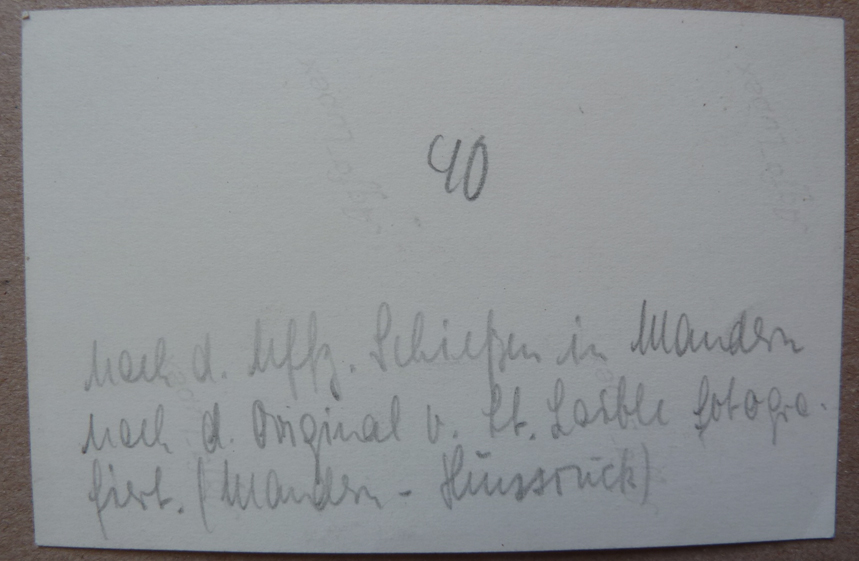 40
Nach d. Uffz. Schießen in Mandern
nach d. Original v. Lt. Loible fotogra-
fiert. (Mandern - Hunsrück)